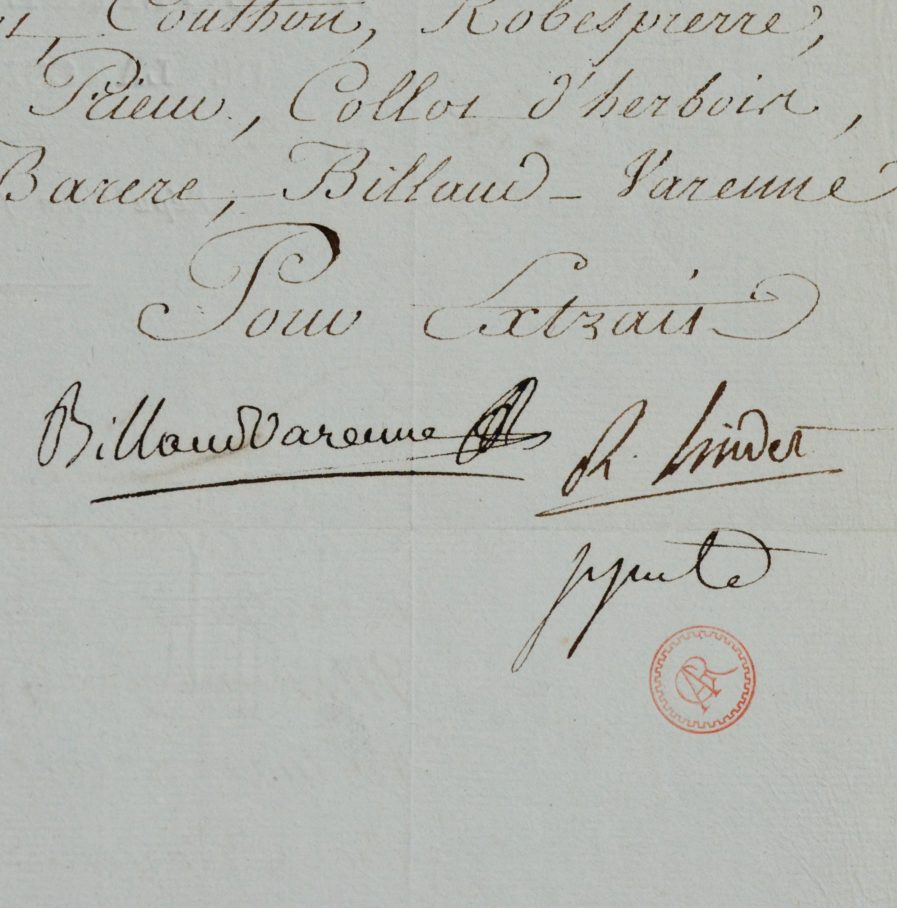 , Couthon, Robespierre,
Prieur, Collot d'herbois,
Barere, Billaud-Varenne
Pour Extrait
BillaudVarenne R. Lindet